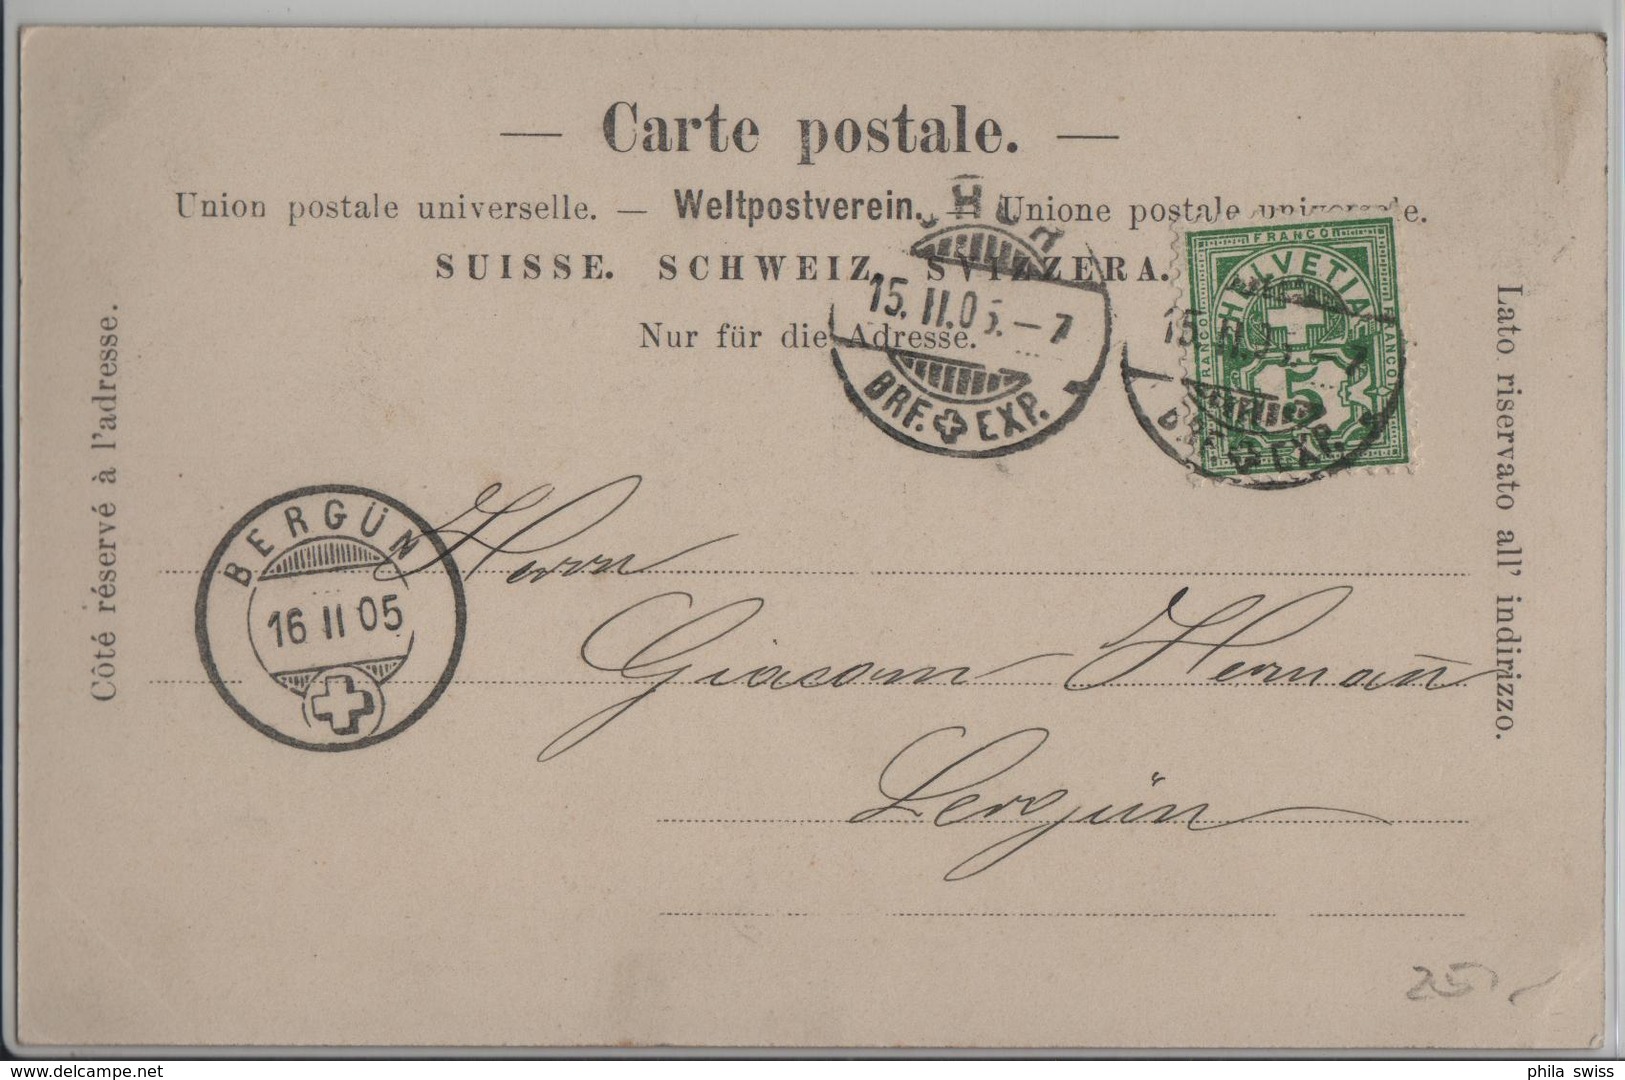 — Carte postale. —
Union postale universelle. — Weltpostverein. — Unione postale universale.
SUISSE. SCHWEIZ. SVIZZERA.
Nur für die Adresse.
Côté réservé à l'adresse.
Lato riservato all' indirizzo.
CHUR
15. II. 05. – 7
BRF. EXP.
FRANCO
FRANCO
FRANCO
HELVETIA
5
15. II. 05. – 7
BRF. EXP.
BERGÜN
16 II 05
Herrn
Giacom Herman̄
Bergün
25.-
phila swiss
delcampe.net